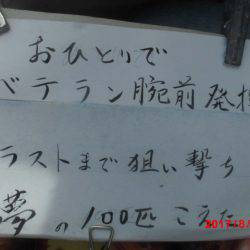 おひとりで
ベテラン腕前発揮
ラストまで狙い撃ち
夢の100匹こえた